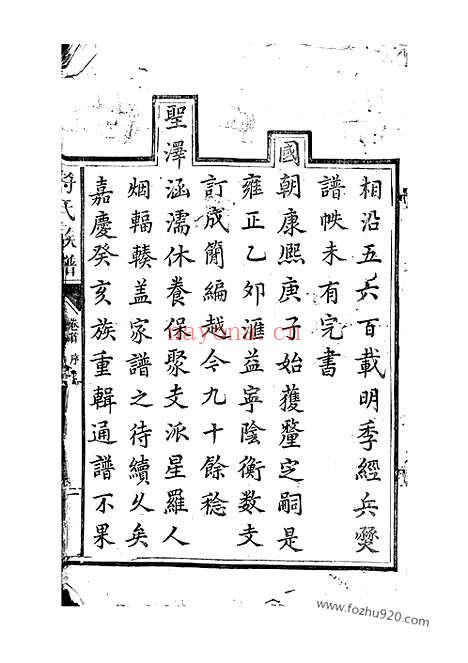 相沿五六百載明季經兵燹
譜帙未有完書
國朝康熙庚子始獲釐定嗣是
雍正乙夘滙益寧陰衡數支
訂成簡編越今九十餘稔
聖澤涵濡休養保聚支派星羅人
烟輻輳盖家譜之待續乆矣
嘉慶癸亥族重輯通譜不果
氏族譜
卷首 序
nayona.cn
www.fozhu920.com